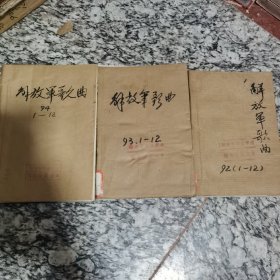 解放军歌曲
94
1-12
解放军歌曲
93.1-12
解放军歌曲
92(1-12)